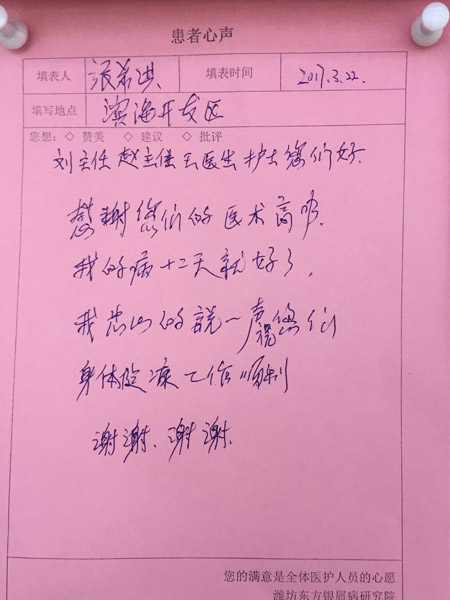 患者心声
填表人 张希洪 填表时间 2017.3.22.
填写地点 滨海开发区
您想：◇ 赞美 ◇ 建议 ◇ 批评
刘主任赵主任王医生护士您们好.
感谢您们的医术高明.
我的病十二天就好了,
我衷心的説一声祝您们
身体健康工作顺利
谢谢.谢谢.
您的满意是全体医护人员的心愿
潍坊东方银屑病研究院